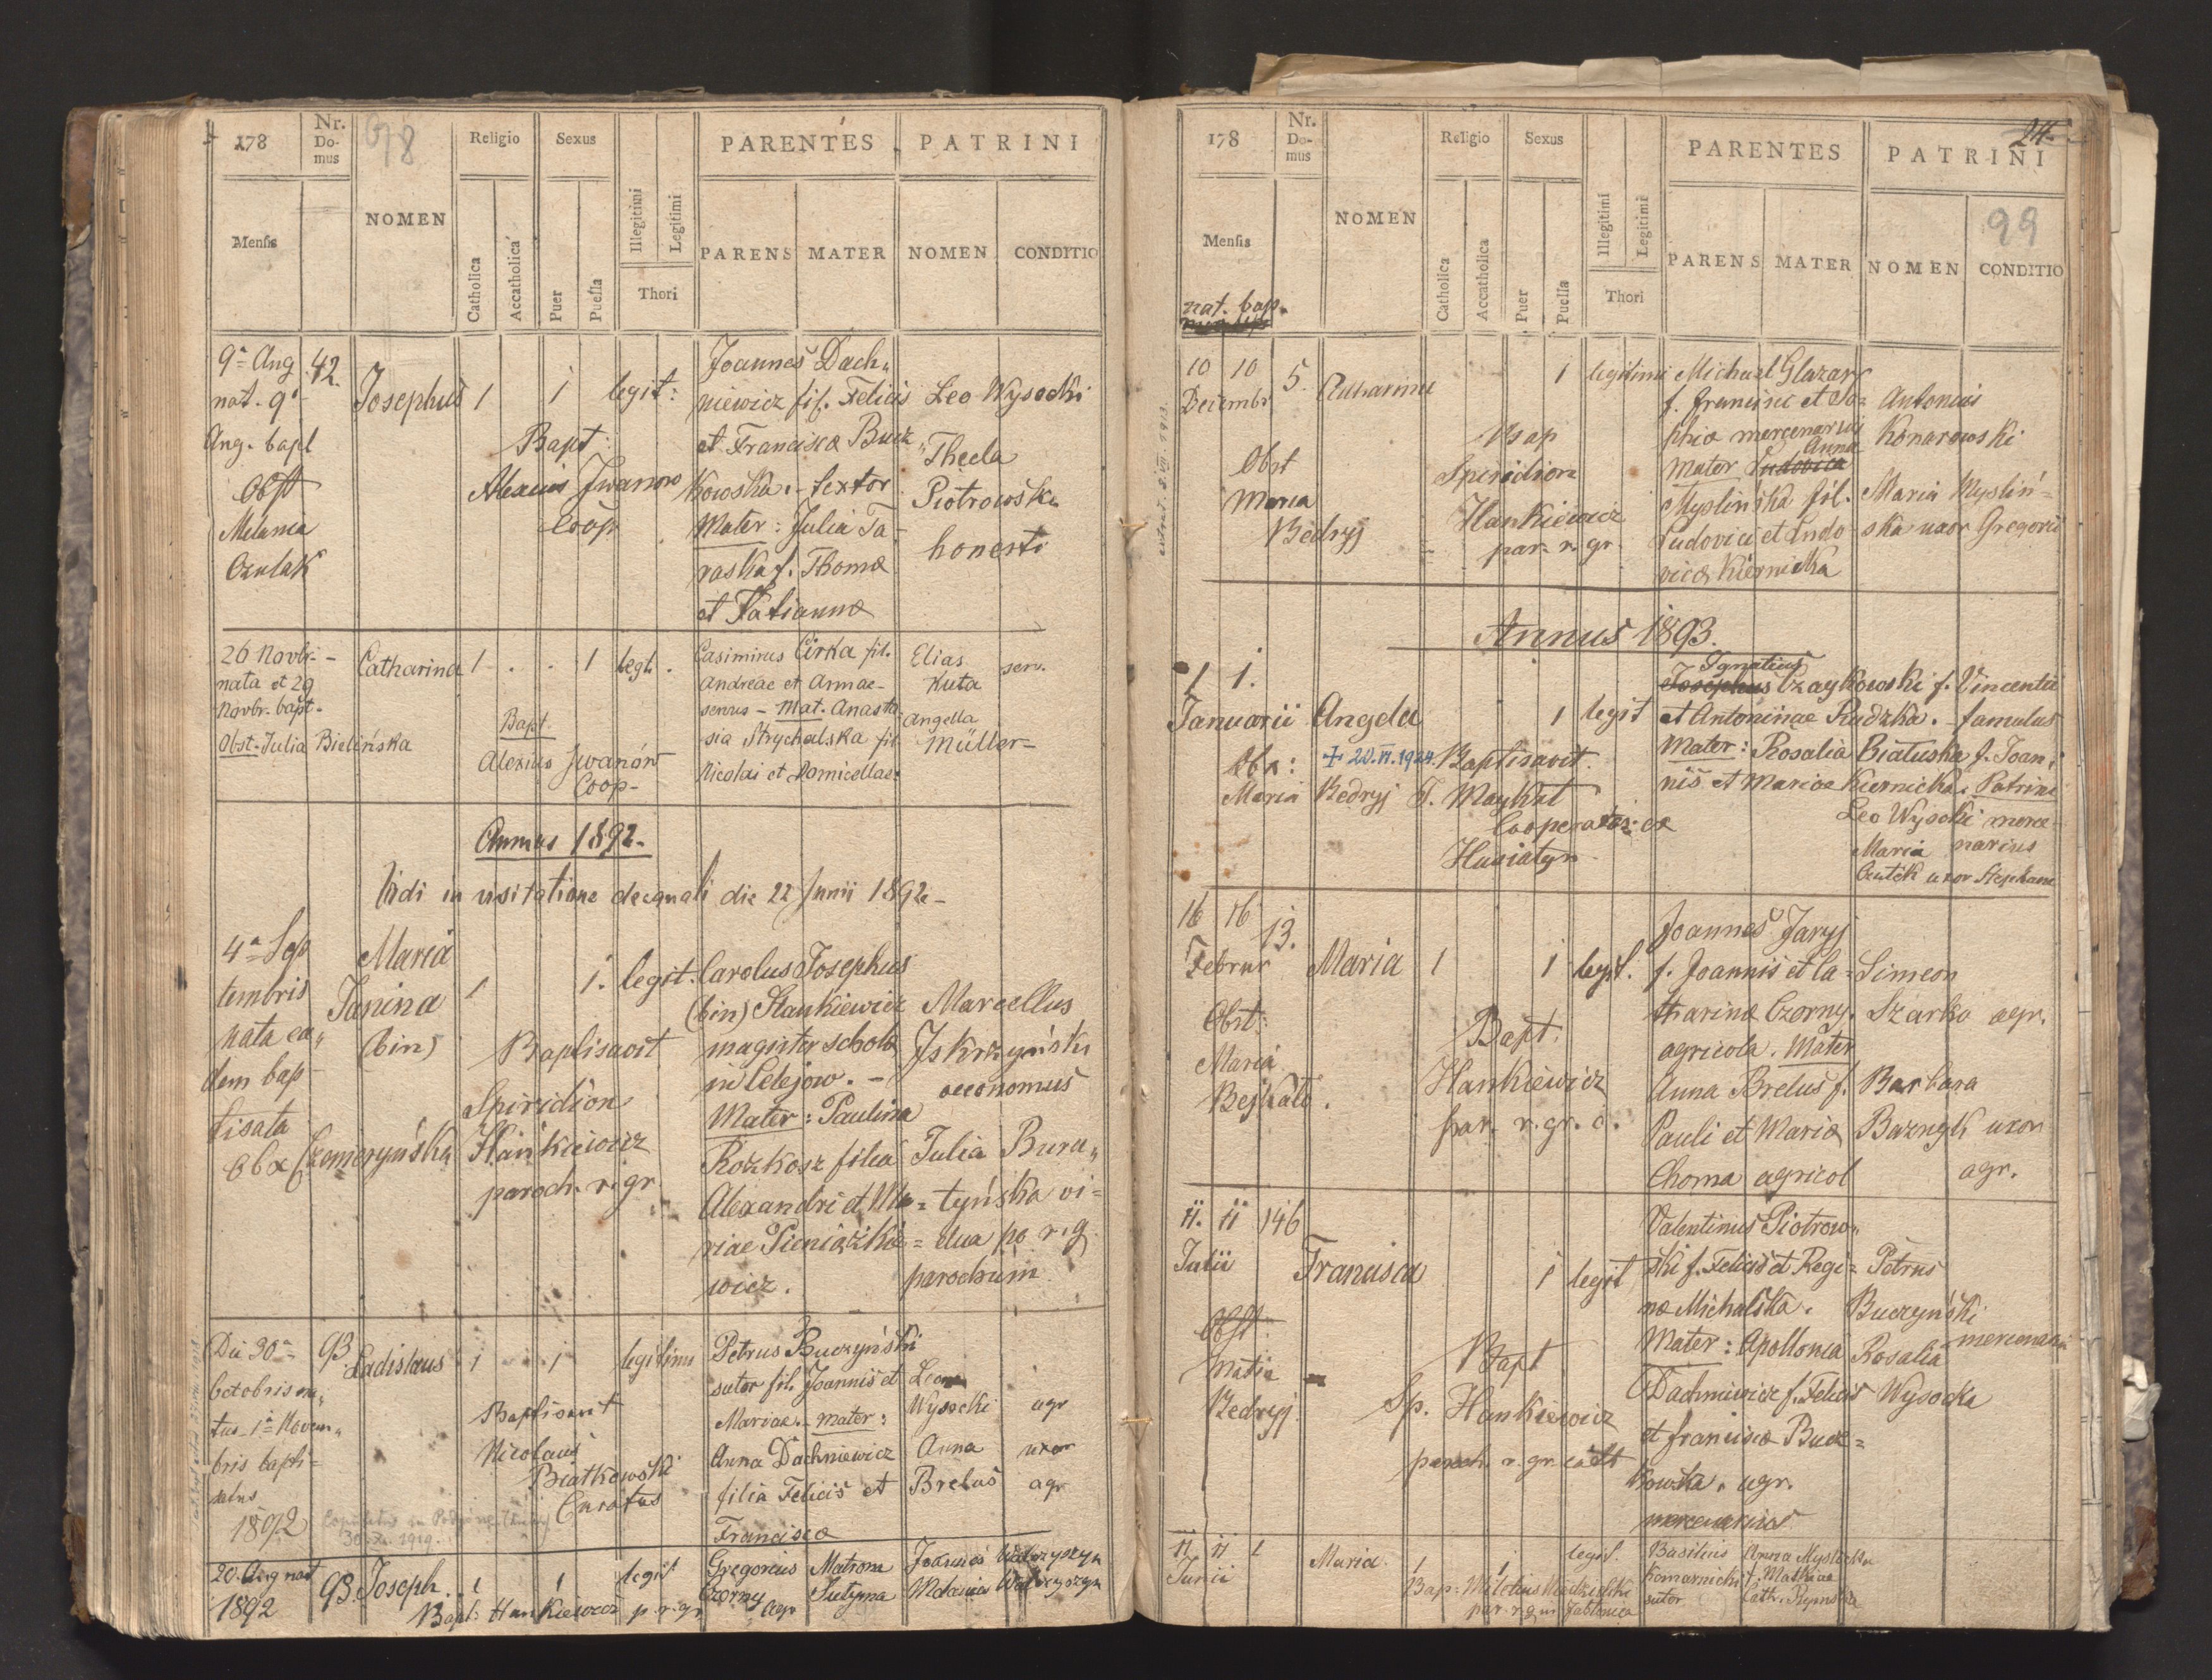 178
Nr. Domus
98
NOMEN
Religio
Sexus
Mensis
Catholica
Accatholica
Puer
Puella
Illegitimi
Legitimi
Thori
PARENTES
PATRINI
PARENS
MATER
NOMEN
CONDITIO
9ª Aug
nat. 9ª
Aug. bapt
42.
Josephus
1
1
legit:
Joannes Dach„
niewicz fil. Felicis
et Francisca Bucz„
kowska. - textor
Mater: Julia Ta-
raska f. Thoma
et Tatianna
Leo Wysocki
Thecla
Piotrowska
honesti
Bapt:
Alexius Iwanow
Coop
Obst
Melania
Czulak
26 Novbr. -
nata et 29
Novbr. bapt.
Obst. Julia Bielińska
Catharina
1
1
legt.
Casimirus Cirka fil.
Andreae et Annae -
servus - Mat. Anasta
sia Strychalska fil.
Nicolai et Domicellae.
Elias
Kuta
serv.
Angella
Müller -
Bapt.
Alexius Iwanów
Coop -
Annus 1892.
Vidi in visitatione decanali die 22 Junii 1892 -
4ª Sep
tembris
nata ea„
dem bap
tisata
Obx Czemeryńska
Maria
Janina
(bin)
1
1.
legit.
Carolus Josephus
(bin) Stankiewicz
magister schola
in Celejow. -
Mater: Paulina
Rozkosz filia
Alexandri et Ma=
riae Pieniążkie=
wicz.
Marcellus
Iskrzyński
oeconomus
Julia Bura„
tyńska vi=
dua po r. g.
parochum
Baptisavit
Spiridion
Hankiewicz
paroch. r. gr.
Die 30ª
Octobris na„
tus 1ª Novem„
bris bapti=
satus
1892
93.
Ladislaus
1
1
legitimi
Petrus Buczyński
sutor fil. Joannis et
Mariae. - mater:
Anna Dachniewicz
filia Felicis et
Francisca
Leon
Wysocki
agr
Anna
uxor
Brelus
agr
Baptisavit
Nicolaus
Białkowski
Curatus
20. Aug nat
1892
93.
Joseph.
1
1
legit
Gregorius
Czorny
agr
Matrona
Sutyma
Joannes
Melania
Bapt: Hankiewicz p. r. gr
178
Nr. Domus
24
99
NOMEN
Religio
Sexus
Mensis
Catholica
Accatholica
Puer
Puella
Illegitimi
Legitimi
Thori
PARENTES
PATRINI
PARENS
MATER
NOMEN
CONDITIO
nat. bap.
10 10
Decembr
5.
Catharina
1
legitimi
Michael Glazar
f. Francisc et So=
phia mercenarius
Anna
Mater Ludovica
Myslińska fil.
Ludovici et Ludo
vica Kiernicka
Antonius
Konarowski
Maria Myslin=
ska uxor Gregorii
Bap
Speridion
Hankiewicz
par. r. gr.
Obst
Maria
Bedryj
Annus 1893.
1 1.
Januarii
Angela
1
legit
Ignatius
Josephus Czaykowski f. Vincentii
et Antoninae Rudzka. - famulus
Mater: Rosalia Białuska f. Joan„
nis et Mariae Kiernicka. Patrini
Leo Wysocki merce-
narius
Maria
Czulek uxor Stephani
Obx:
Maria Bedryj
+ 20. VI. 1924.
Baptisavit.
Cooperator ex
Husiatyn
16 16
Februar
13.
Maria
1
1
legit.
Joannes Jaryj
f. Joannis et Ca=
tharina Czorny.
agricola. Mater
Anna Brelus f.
Pauli et Maria
Choma agricol
Simeon
Szarko agr.
Barbara
Baznyk uxor
agr.
Obst:
Maria
Bejkato.
Bapt.
Hankiewicz
par. r. gr. c.
11. 11
Julii
146
Francisca
1
legit
Valentinus Piotrow„
ski f. Felicis et Regi=
na Michalska.
Mater: Apollonia
Dachniewicz f. Felicis
et Francisca Bucz=
kowska. agr.
mercenarius
Petrus
Buczyński
mercenarii
Rosalia
Wysocka
Obst:
Maria
Bedryj
Bapt
Sp. Hankiewicz
paroch. r. gr. cath
11 11
Junii
1
Maria.
1
1
legit.
Basilius
Komarnicki
sutor
Anna Myslicka
f. Mathiae
Cath. Rymska